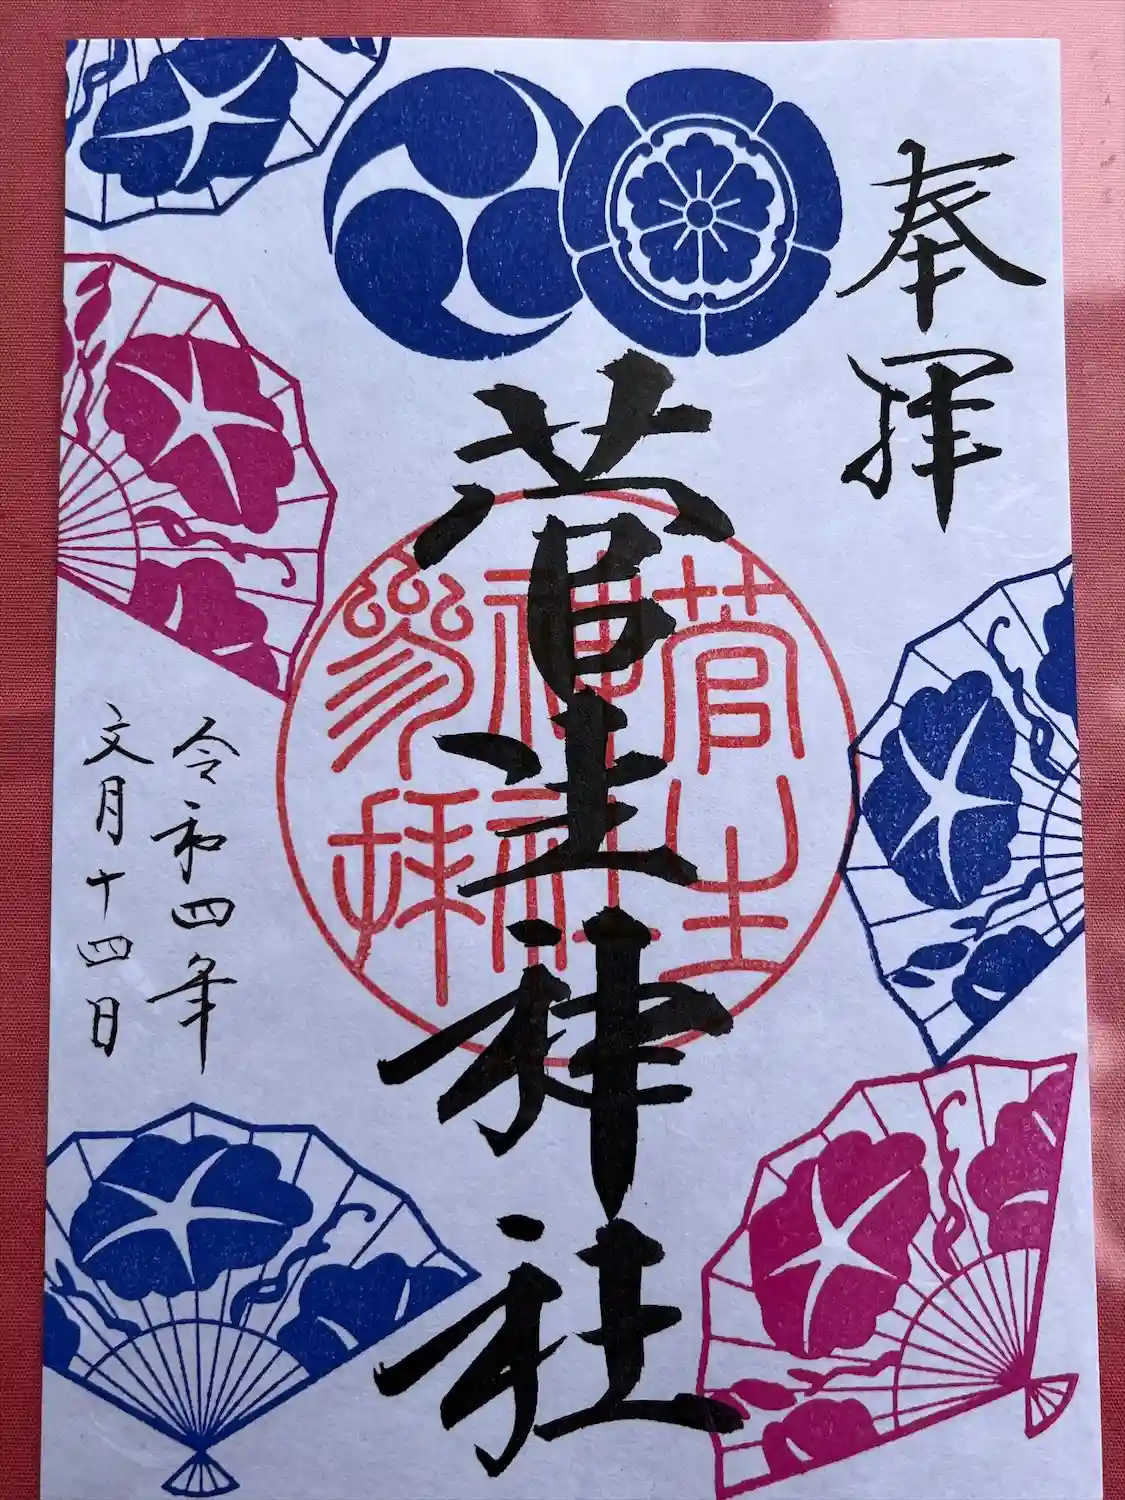 奉拝
菅生神社
菅生
神社
参拝
令和四年
文月十四日